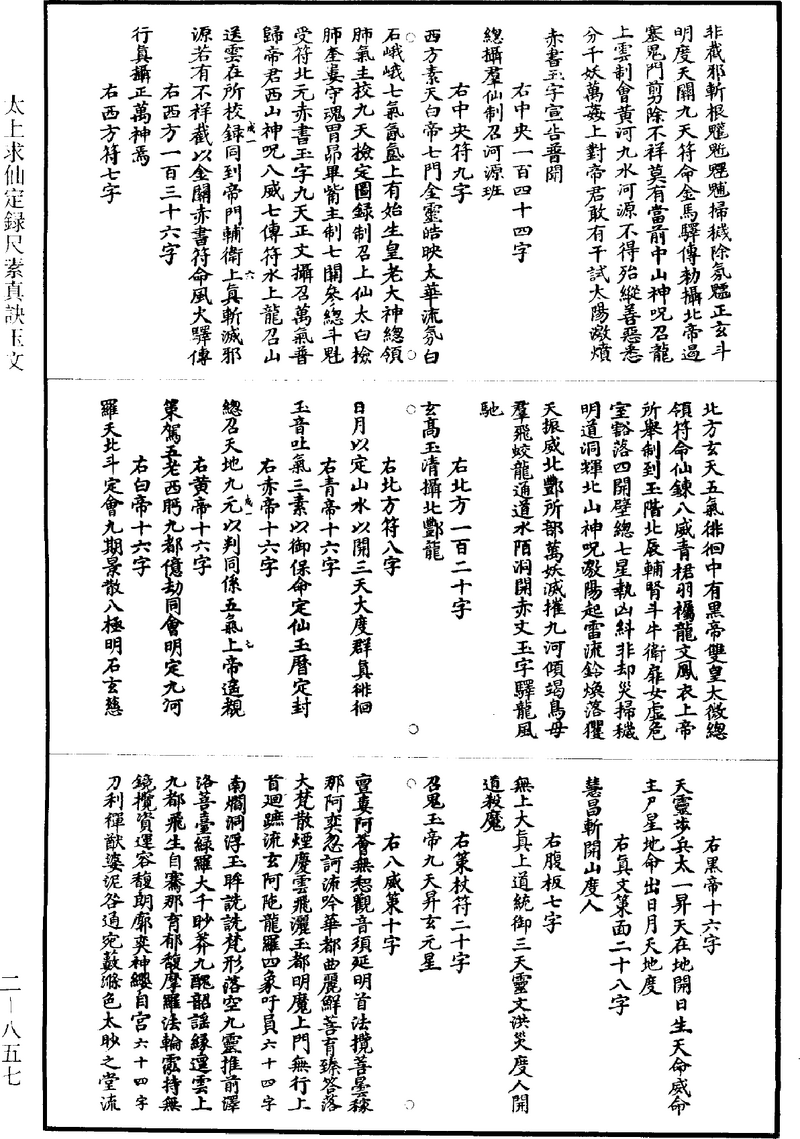 非截邪斬根魓魓魓魒掃穢除氛魒正玄斗
明度天關九天符命金馬驛傳勑攝北帝遏
塞鬼門剪除不祥莫有當前中山神呪召龍
上雲制會黃河九水河源不得殆縱善惡悉
分千妖萬姦上對帝君敢有干試太陽激憤
赤書玉字宣告普聞
右中央一百四十四字
總攝羣仙制召河源班
右中央符九字
西方素天白帝七門金靈皓映太華流氛白
石峨峨七氣氤氳上有始生皇老大神總領
肺氣主校九天檢定圖錄制召上仙太白檢
肺奎婁守魂胃昴畢觜主制七關參總斗魁
受符北元赤書玉字九天正文攝召萬氣普
歸帝君西山神呪八威七傳符水上龍召山
送雲在所校録同到帝門輔衛上真斬滅邪
源若有不祥截以金關赤書符命風火驛傳
右西方一百三十六字
行真攝正萬神焉
右西方符七字
北方玄天五氣徘徊中有黑帝雙皇太微總
領符命仙錬八威青裙羽襹龍文鳳衣上帝
所舉制到玉階北辰輔腎斗牛衛扉女虛危
室豁落四開壁總七星執凶糾非却災掃穢
明道洞輝北山神呪激陽起雷流鈴煥落玃
天振威北酆所部萬妖滅摧九河傾竭鳥母
羣飛蛟龍通道水陌洞開赤文玉字驛龍風
馳
右北方一百二十字
玄高玉清攝北酆龍
右北方符八字
日月以定山水以開三天大度群真徘徊
右青帝十六字
玉音吐氣三素以御保命定仙玉曆定封
右赤帝十六字
總召天地九元以判同係五氣上帝遙觀
右黃帝十六字
策駕五老西眄九都億劫同會明定九河
右白帝十六字
羅天北斗定會九期景散八極明石玄慈
右黑帝十六字
天靈步兵太一昇天在地開日生天命威命
主尸星地命出日月天地度
右真文策面二十八字
慧昌斬開山度人
右腹板七字
無上大真上道統御三天靈文洪災度人開
道殺魔
右策杖符二十字
召鬼玉帝九天昇玄元星
右八威策十字
亶婁阿薈無惒觀音須延明首法攬菩曇稼
那阿奕忽訶流吟華都曲麗鮮菩育臻答落
大梵散煙慶雲飛灑玉都明魔上門無行上
首迴蹠流玄阿陁龍羅四象吁員六十四字
南爓洞浮玉眸詵詵梵形落空九靈推前澤
洛菩臺綠羅大千眇莽九醜韶謡緣邅雲上
九都飛生自騫那育郁馥摩羅法輪霐持無
鏡攬資運容馥朗廓奕神纓自宮六十四字
刀利禪猷婆泥咎通宛藪滌色太眇之堂流
太上求仙定録尺素真訣玉文
二—八五七